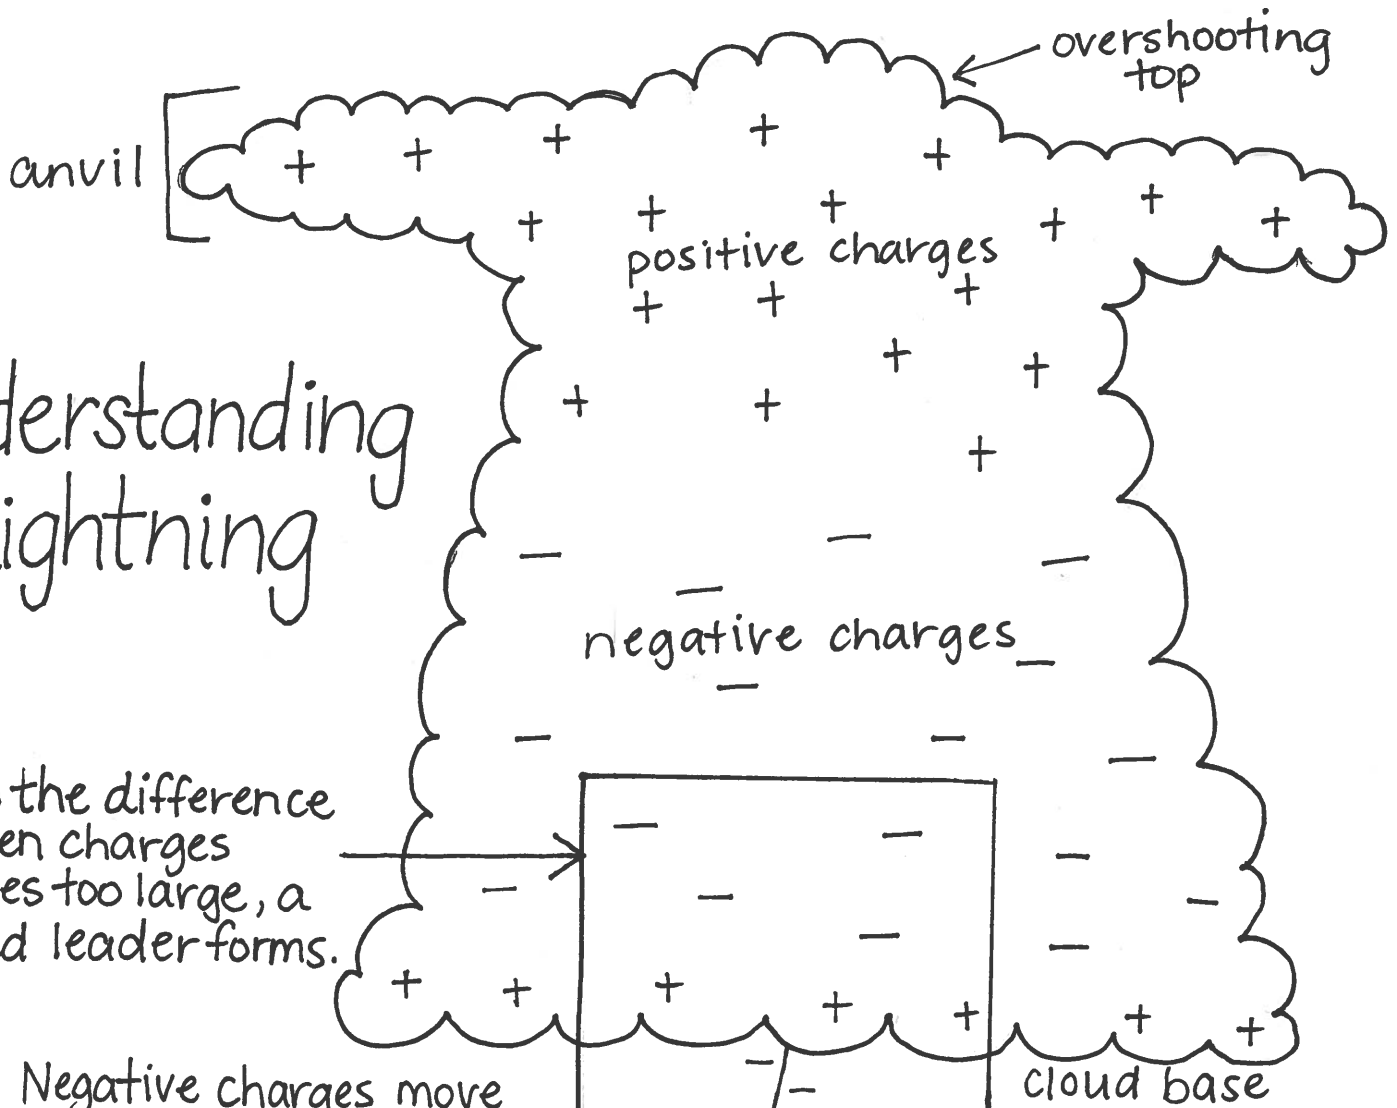 overshooting
top
anvil
positive charges
derstanding
ightning
negative charges
the difference
en charges
es too large, a
d leader forms.
Negative charges move
cloud base